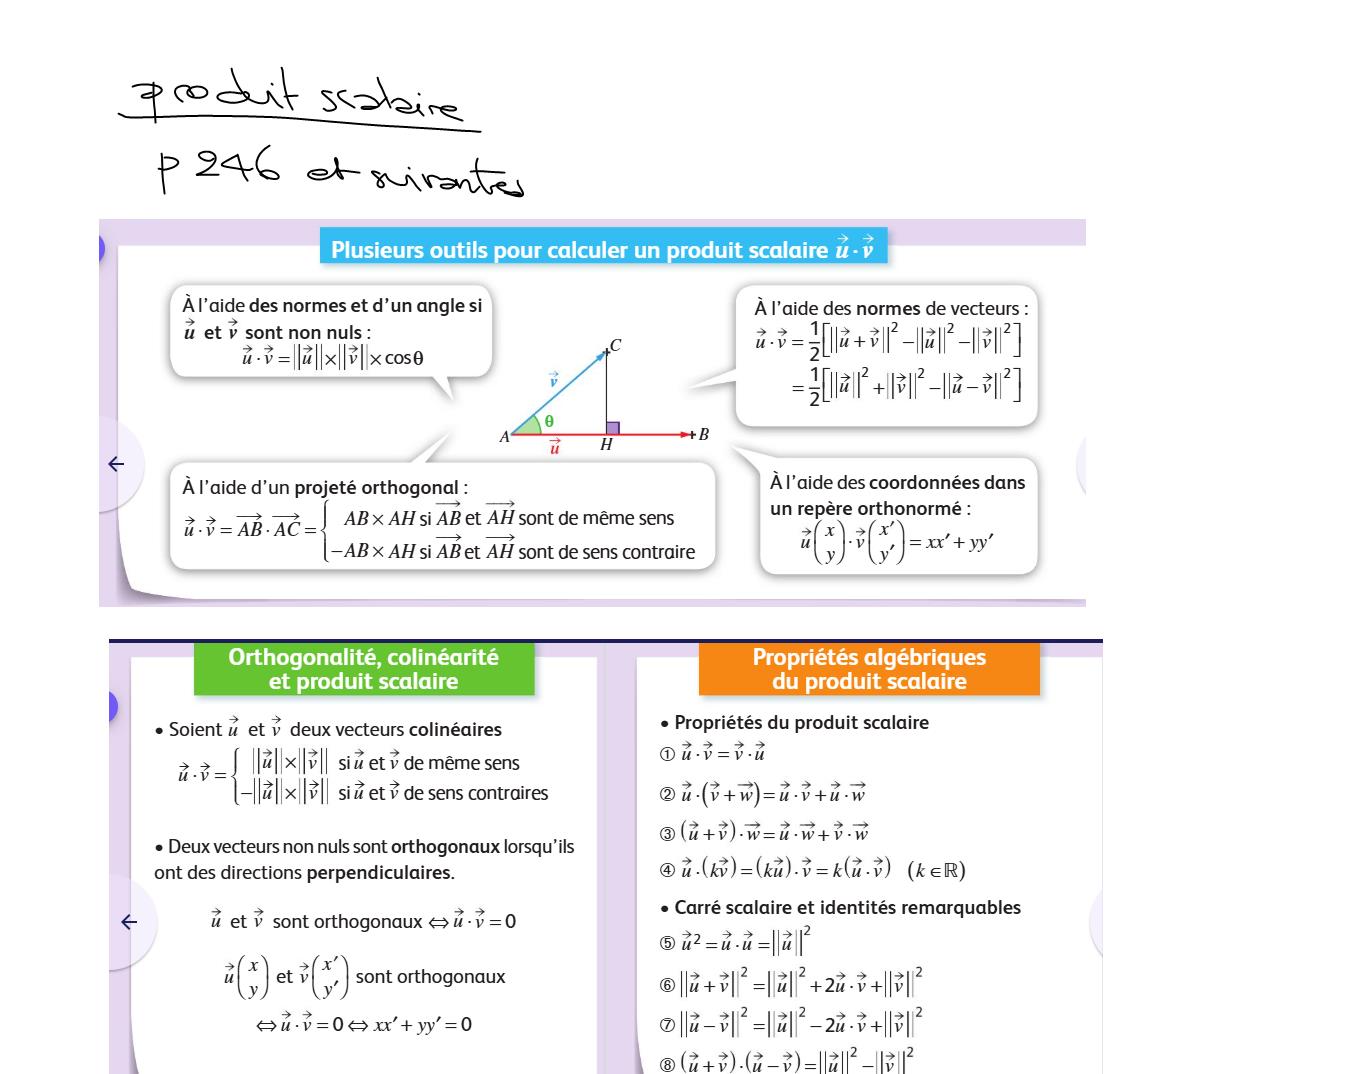 produit scalaire
p 246 et suivantes
Plusieurs outils pour calculer un produit scalaire u⃗ · v⃗
À l'aide des normes et d'un angle si
u⃗ et v⃗ sont non nuls :
u⃗ · v⃗ = ||u⃗|| × ||v⃗|| × cos θ
À l'aide des normes de vecteurs :
u⃗ · v⃗ = 1/2 [||u⃗ + v⃗||² − ||u⃗||² − ||v⃗||²]
= 1/2 [||u⃗||² + ||v⃗||² − ||u⃗ − v⃗||²]
C
v⃗
θ
A
u⃗
H
B
À l'aide d'un projeté orthogonal :
u⃗ · v⃗ = AB⃗ · AC⃗ = { AB × AH si AB⃗ et AH⃗ sont de même sens
−AB × AH si AB⃗ et AH⃗ sont de sens contraire
À l'aide des coordonnées dans
un repère orthonormé :
u⃗(x y) · v⃗(x′ y′) = xx′ + yy′
Orthogonalité, colinéarité
et produit scalaire
• Soient u⃗ et v⃗ deux vecteurs colinéaires
u⃗ · v⃗ = { ||u⃗|| × ||v⃗|| si u⃗ et v⃗ de même sens
−||u⃗|| × ||v⃗|| si u⃗ et v⃗ de sens contraires
• Deux vecteurs non nuls sont orthogonaux lorsqu'ils
ont des directions perpendiculaires.
u⃗ et v⃗ sont orthogonaux ⇔ u⃗ · v⃗ = 0
u⃗(x y) et v⃗(x′ y′) sont orthogonaux
⇔ u⃗ · v⃗ = 0 ⇔ xx′ + yy′ = 0
Propriétés algébriques
du produit scalaire
• Propriétés du produit scalaire
① u⃗ · v⃗ = v⃗ · u⃗
② u⃗ · (v⃗ + w⃗) = u⃗ · v⃗ + u⃗ · w⃗
③ (u⃗ + v⃗) · w⃗ = u⃗ · w⃗ + v⃗ · w⃗
④ u⃗ · (kv⃗) = (ku⃗) · v⃗ = k(u⃗ · v⃗) (k ∈ ℝ)
• Carré scalaire et identités remarquables
⑤ u⃗² = u⃗ · u⃗ = ||u⃗||²
⑥ ||u⃗ + v⃗||² = ||u⃗||² + 2u⃗ · v⃗ + ||v⃗||²
⑦ ||u⃗ − v⃗||² = ||u⃗||² − 2u⃗ · v⃗ + ||v⃗||²
⑧ (u⃗ + v⃗) · (u⃗ − v⃗) = ||u⃗||² − ||v⃗||²